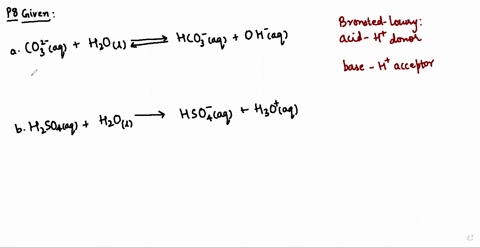 P8 Given:
a. CO₃²⁻(aq) + H₂O(l) ⇌ HCO₃⁻(aq) + OH⁻(aq)
b. H₂SO₄(aq) + H₂O(l) → HSO₄⁻(aq) + H₃O⁺(aq)
Bronsted-lowry:
acid - H⁺ donor
base - H⁺ acceptor